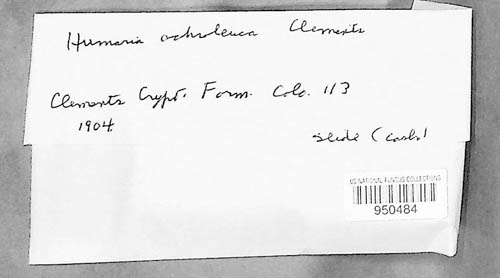 Humaria ochroleuca Clements
Clements Crypt. Form. Colo. 113
1904
slide (Cash)
US NATIONAL FUNGUS COLLECTIONS
950484